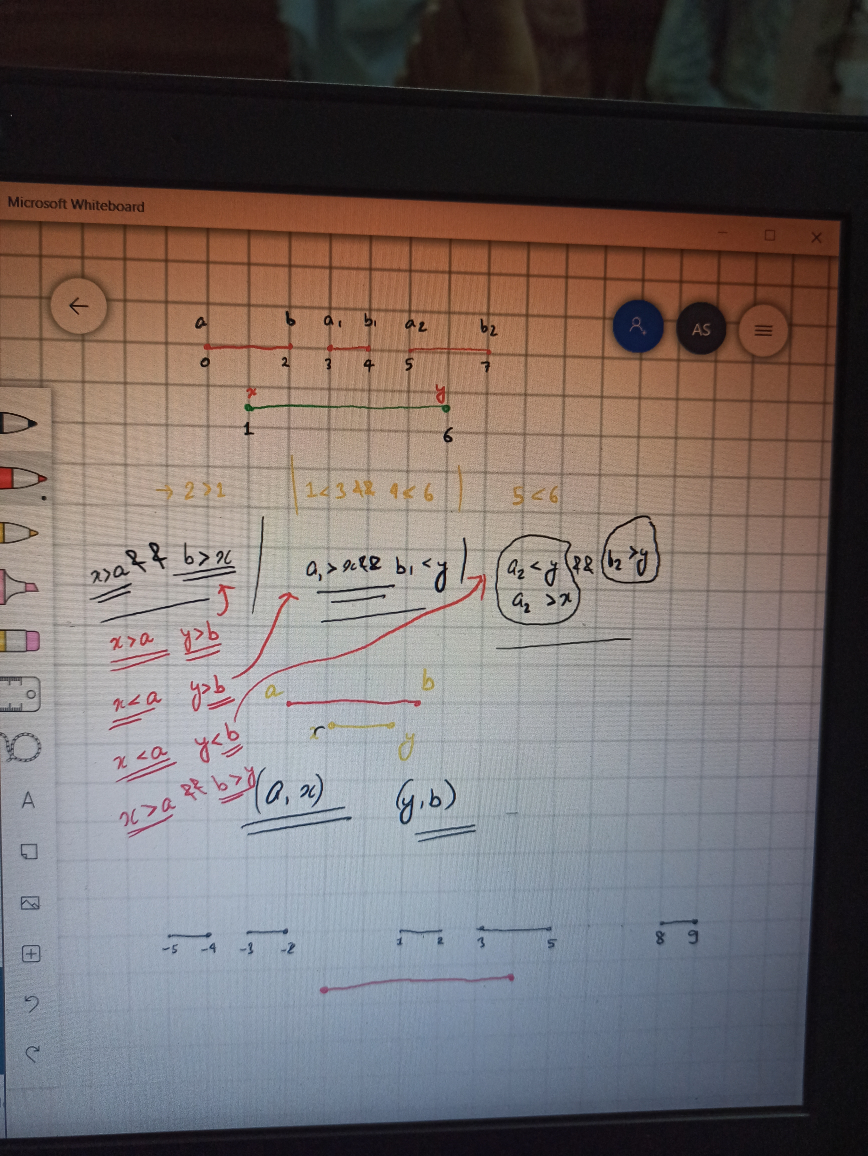 Microsoft Whiteboard
a b a₁ b₁ a₂ b₂
0 2 3 4 5 7
AS
x y
1 6
→ 2>1 | 1<3 && 4<6 | 5<6
x>a && b>x | a₁>x && b₁<y | a₂<y && b₂>y
a₂>x
x>a y>b
x<a y>b
a b
x y
x<a y<b
x>a && b>y (a,x) (y,b)
A
-5 -4 -3 -2 1 2 3 5 8 9